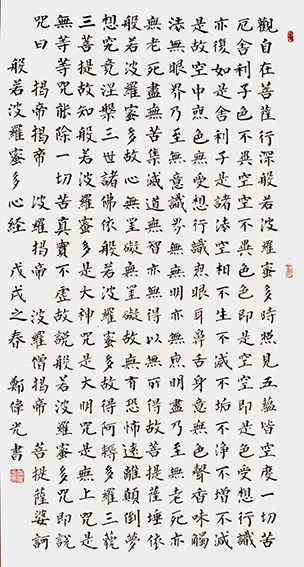 觀自在菩薩行深般若波羅蜜多時照見五蘊皆空度一切苦
厄舍利子色不異空空不異色色即是空空即是色受想行識
亦復如是舍利子是諸法空相不生不滅不垢不淨不增不減
是故空中無色無受想行識無眼耳鼻舌身意無色聲香味觸
法無眼界乃至無意識界無無明亦無無明盡乃至無老死亦
無老死盡無苦集滅道無智亦無得以無所得故菩提薩埵依
般若波羅蜜多故心無罣礙無罣礙故無有恐怖遠離顛倒夢
想究竟涅槃三世諸佛依般若波羅蜜多故得阿耨多羅三藐
三菩提故知般若波羅蜜多是大神咒是大明咒是無上咒是
無等等咒能除一切苦真實不虛故說般若波羅蜜多咒即說
咒曰 揭帝揭帝 波羅揭帝 波羅僧揭帝 菩提薩婆訶
般若波羅蜜多心經 戊戌之春 鄭偉光書